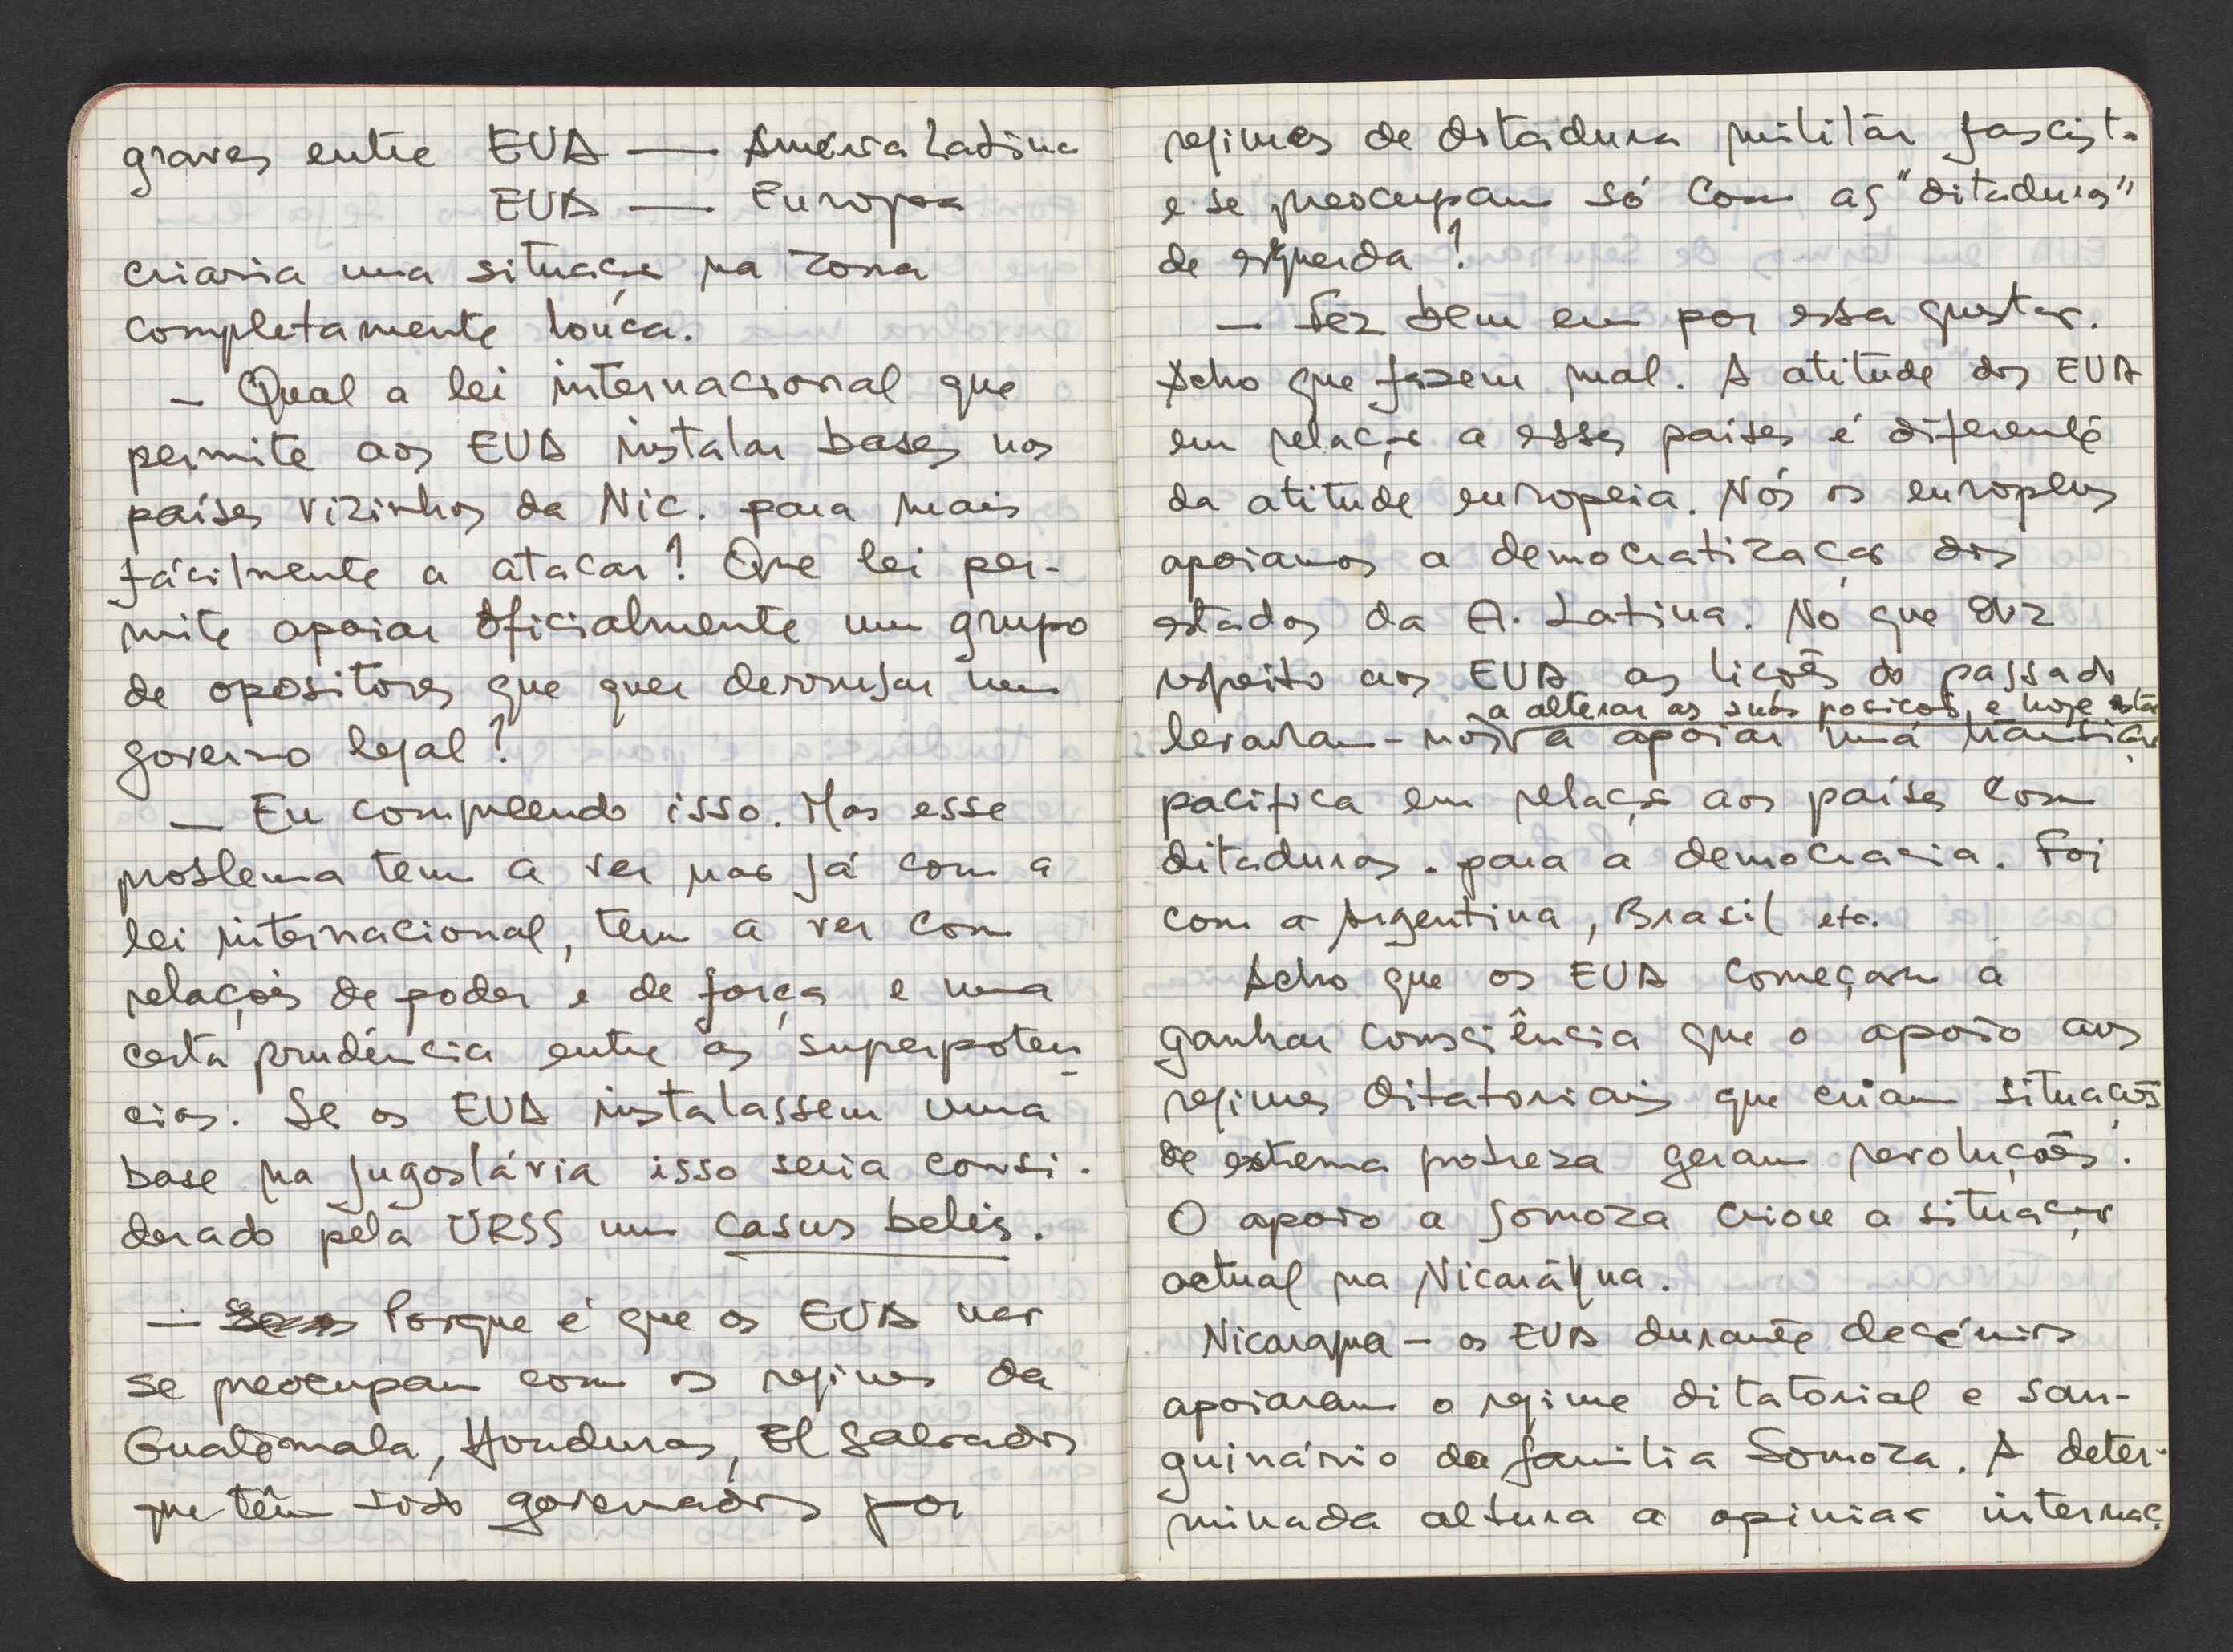 graves entre EUA — América Latina
EUA — Europa
criaria uma situação na zona
completamente louca.
— Qual a lei internacional que
permite aos EUA instalar bases nos
países vizinhos da Nic. para mais
fácilmente a atacar? Que lei per-
mite apoiar oficialmente um grupo
de opositores que quer derrubar um
governo legal?
— Eu compreendo isso. Mas esse
problema tem a ver não já com a
lei internacional, tem a ver com
relações de poder e de força e uma
certa prudência entre as superpotên
cias. Se os EUA instalassem uma
base na Jugoslávia isso seria consi-
derado pela URSS um casus belis.
— Porque é que os EUA não
se preocupam com os regimes da
Guatemala, Honduras, El Salvador
que têm sido governados por
regimes de ditadura militar fascista
e se preocupam só com as "ditaduras"
de esquerda?
— Fez bem em por essa questão.
Acho que fazem mal. A atitude dos EUA
em relação a esses países é diferente
da atitude europeia. Nós os europeus
apoiamos a democratização dos
estados da A. Latina. No que diz
respeito aos EUA as lições do passado
a alterar as suas posições e hoje estão
levaram-nos a apoiar uma transição
pacifica em relação aos países com
ditaduras. para a democracia. Foi
com a Argentina, Brasil etc.
Acho que os EUA começam a
ganhar consciência que o apoio aos
regimes ditatoriais que criam situações
de extrema pobreza geram revoluções.
O apoio a Somoza criou a situação
actual na Nicarágua.
Nicaragua — os EUA durante decénios
apoiaram o regime ditatorial e san-
guinário da familia Somoza. A deter-
minada altura a opinião internaç.